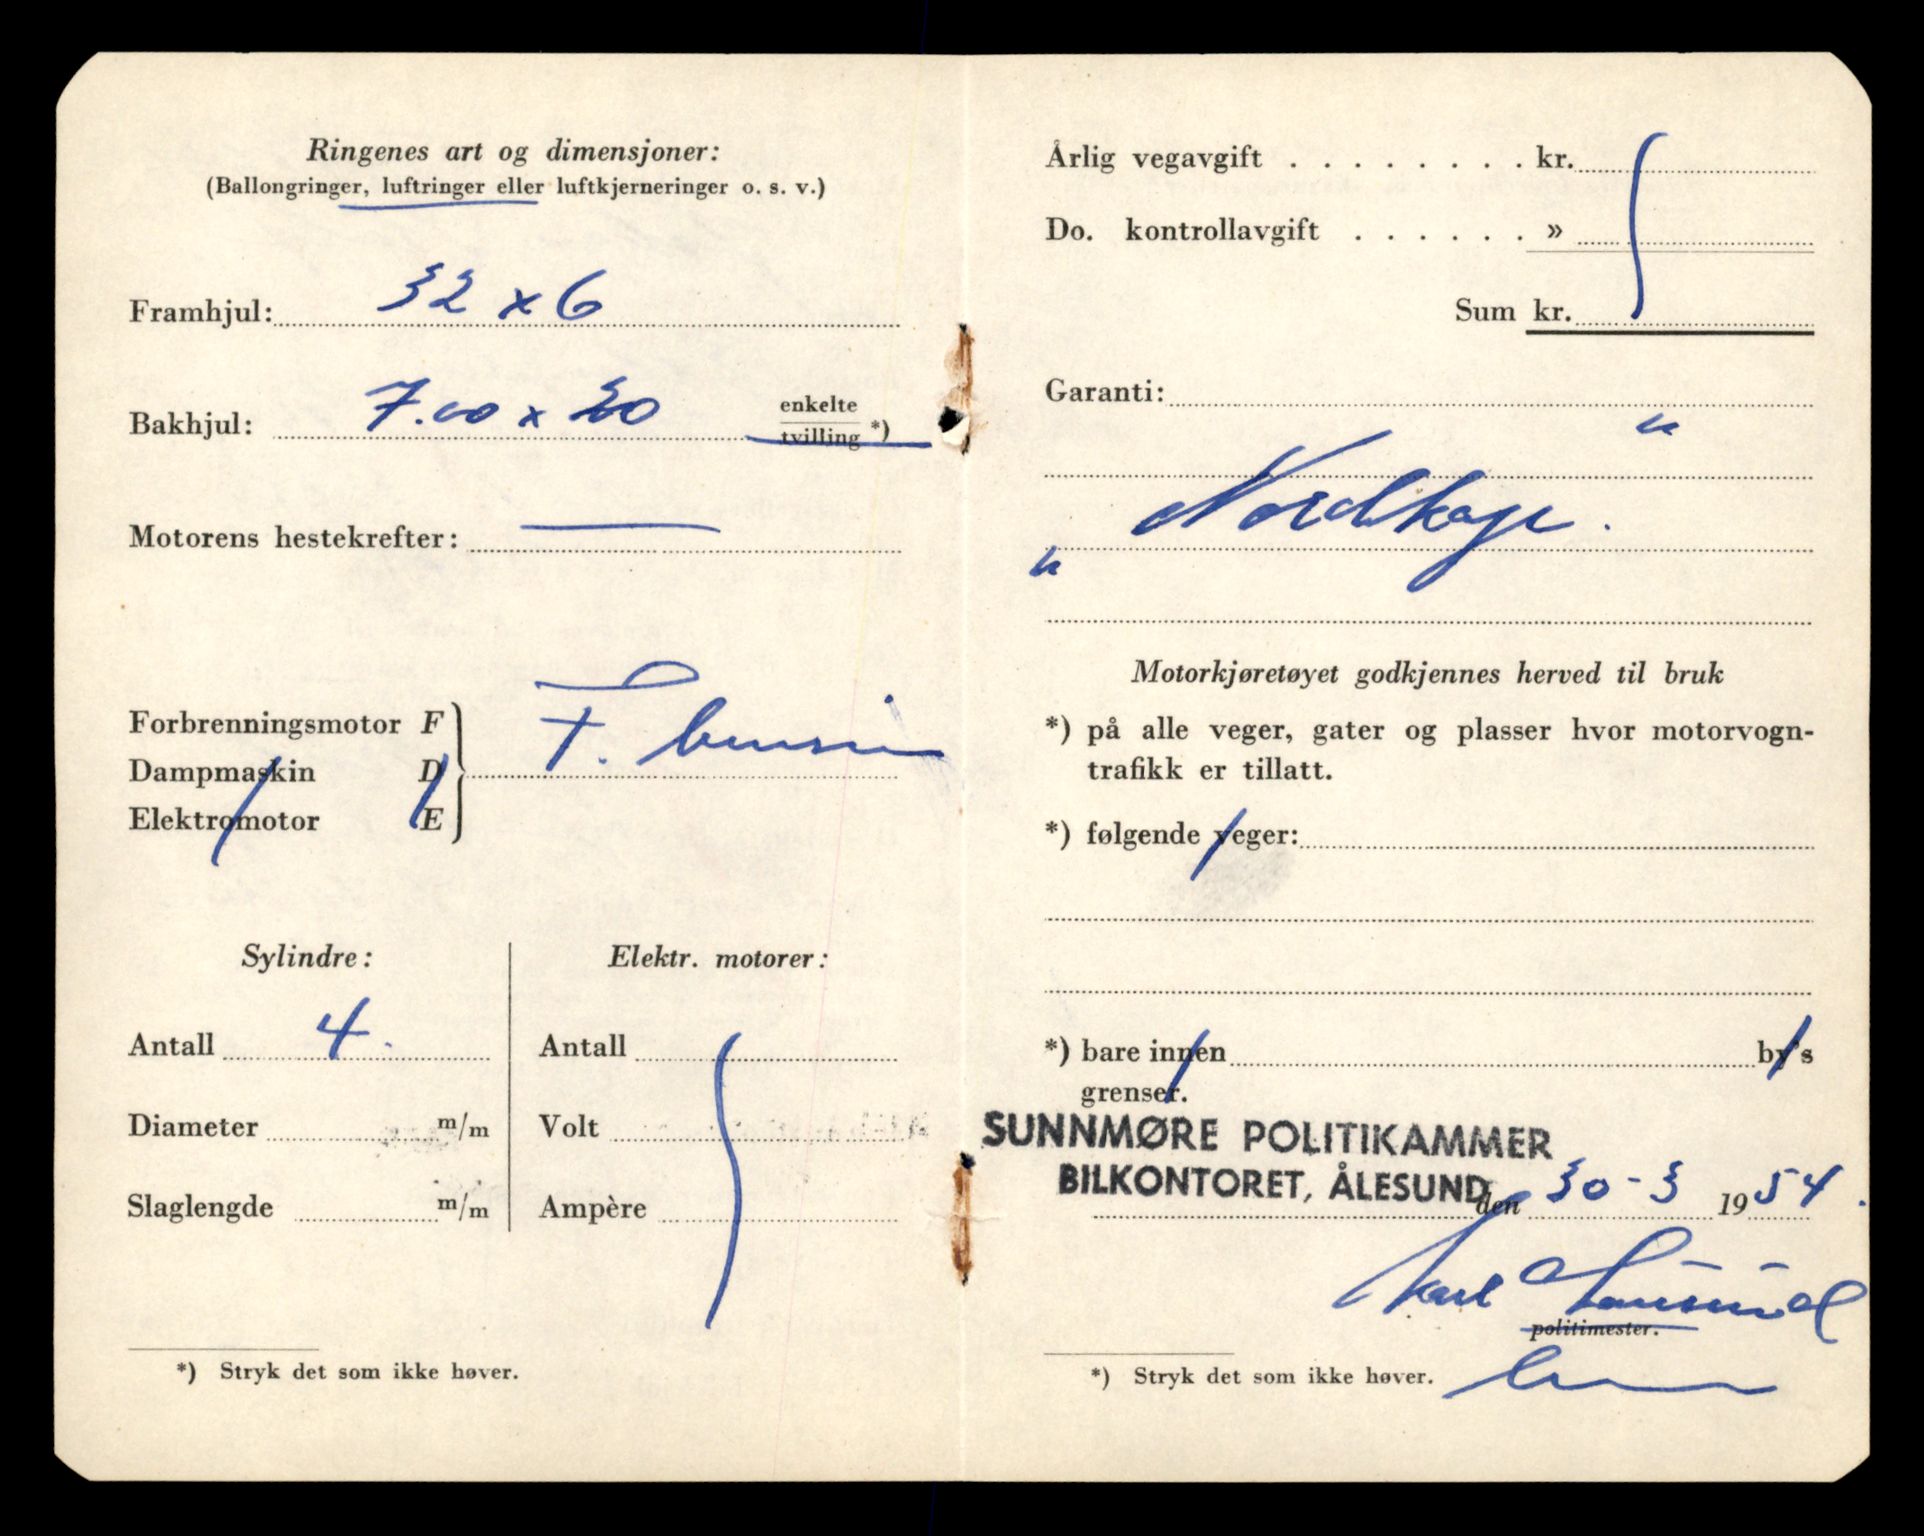 Ringenes art og dimensjoner:
(Ballongringer, luftringer eller luftkjerneringer o. s. v.)
Framhjul: 32 x 6
Bakhjul: 7.00 x 20 enkelte
tvilling *)
Motorens hestekrefter: —
Forbrenningsmotor F
Dampmaskin D
Elektromotor E
F. bensin
Sylindre:
Antall 4.
Diameter m/m
Slaglengde m/m
Elektr. motorer:
Antall
Volt
Ampère
*) Stryk det som ikke høver.
Årlig vegavgift . . . . . . . . kr.
Do. kontrollavgift . . . . . . »
Sum kr.
Garanti:
"
Nordkapp.
"
Motorkjøretøyet godkjennes herved til bruk
*) på alle veger, gater og plasser hvor motorvogn-
trafikk er tillatt.
*) følgende veger:
*) bare innen by's
grenser.
SUNNMØRE POLITIKAMMER
BILKONTORET, ÅLESUND
den 30-3 1954.
Karl
politimester.
*) Stryk det som ikke høver.